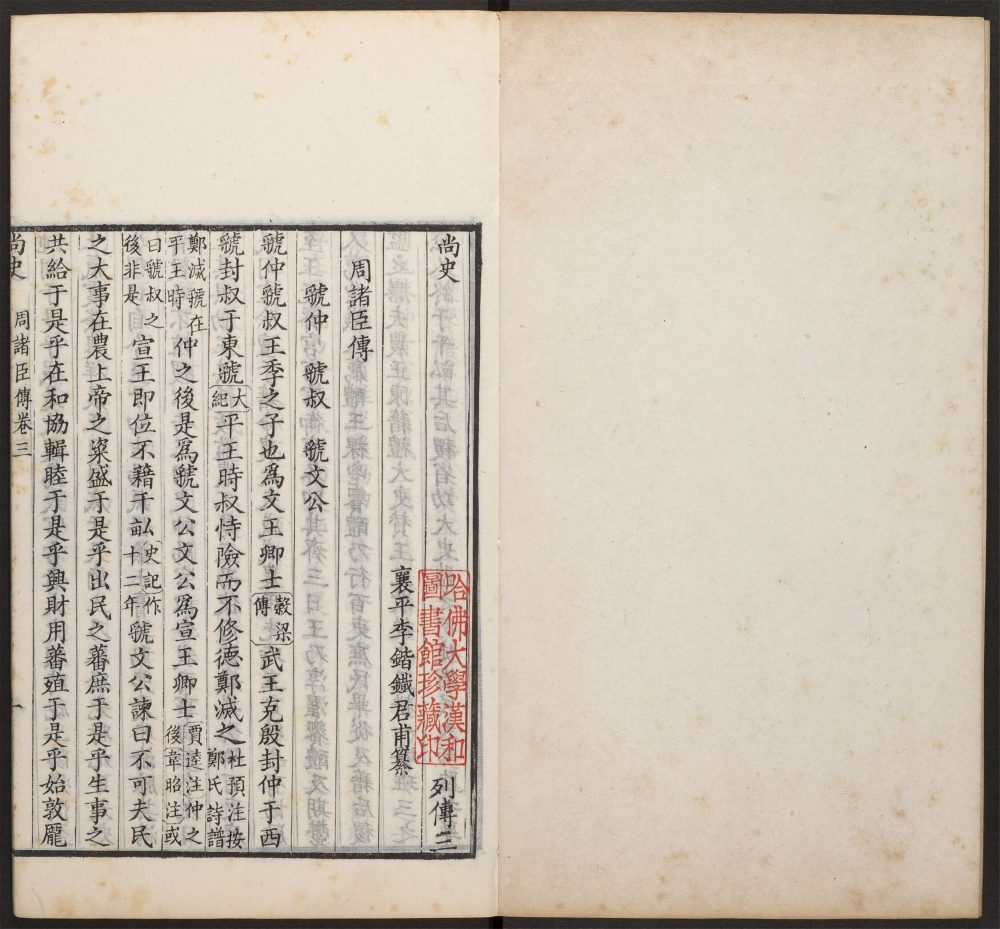 尚史 列傳三
哈佛大學漢和
圖書館珍藏印
襄平李鍇鐵君甫纂
周諸臣傳
虢仲 虢叔 虢文公
虢仲虢叔王季之子也爲文王卿士穀梁傳武王克殷封仲于西
虢封叔于東虢大紀平王時叔恃險而不修德鄭滅之杜預注按鄭氏詩譜
鄭滅虢在平王時仲之後是爲虢文公文公爲宣王卿士賈逵注仲之後韋昭注或
曰虢叔之後非是宣王即位不藉千畝史記作十二年虢文公諫曰不可夫民
之大事在農上帝之粢盛于是乎出民之蕃庶于是乎生事之
共給于是乎在和協輯睦于是乎興財用蕃殖于是乎始敦龐
尚史 周諸臣傳卷三 一